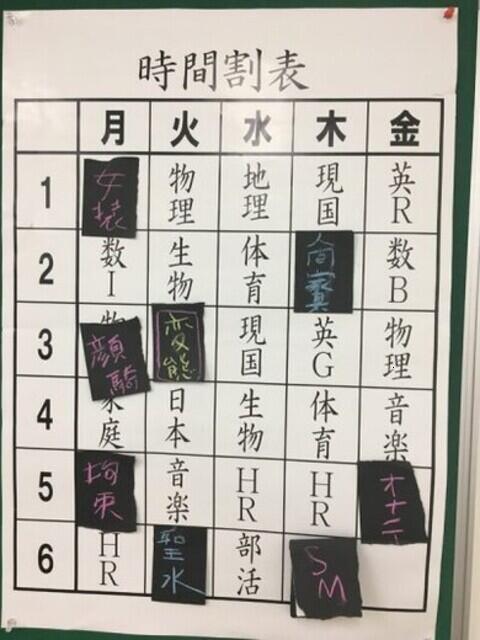 時間割表
月 火 水 木 金
1 女装 物理 地理 現国 英R
2 数I 生物 体育 数B
3 顔騎 変態 現国 英G 物理
4 家庭 日本 生物 体育 音楽
5 拘束 音楽 HR HR オナニー
6 HR 聖水 部活 SM